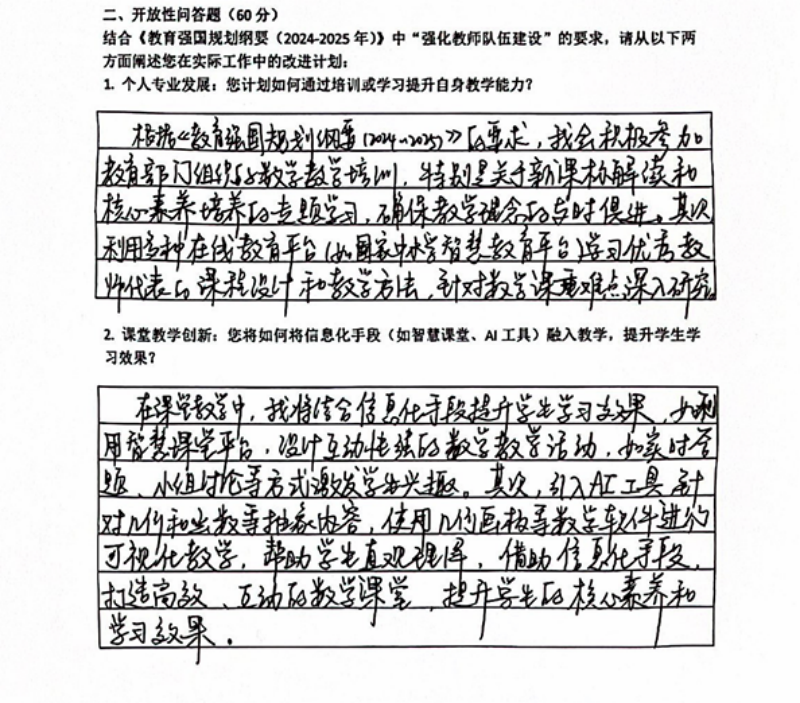 二、开放性问答题（60 分）
结合《教育强国规划纲要（2024-2025 年）》中“强化教师队伍建设”的要求，请从以下两
方面阐述您在实际工作中的改进计划：
1. 个人专业发展：您计划如何通过培训或学习提升自身教学能力？
根据《教育强国规划纲要（2024-2025）》的要求，我会积极参加
教育部门组织的数学教学培训，特别是关于新课标解读和
核心素养培养的专题学习，确保教学理念的与时俱进。其次
利用多种在线教育平台（如国家中小学智慧教育平台）学习优秀教
师代表的课程设计和教学方法，针对教学课重难点深入研究
2. 课堂教学创新：您将如何将信息化手段（如智慧课堂、AI 工具）融入教学，提升学生学
习效果？
在课堂教学中，我将结合信息化手段提升学生学习效果，如利
用智慧课堂平台，设计互动性强的数学教学活动，如实时答
题、小组讨论等方式激发学生兴趣。其次，引入AI工具针
对几何和函数等抽象内容，使用几何画板等数学软件进行
可视化教学，帮助学生直观理解，借助信息化手段，
打造高效、互动的数学课堂，提升学生的核心素养和
学习效果。